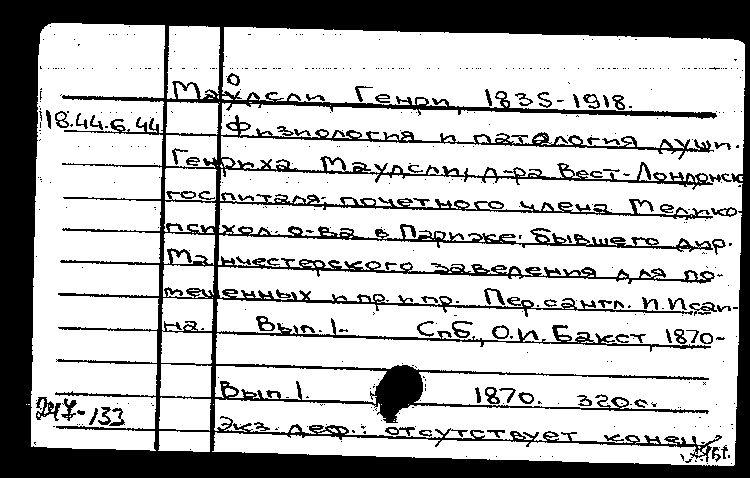 Маудсли, Генри, 1835-1918.
18.44.6.44 Физиология и патология души.
Генриха Маудсли, д-ра Вест-Лондонск
госпиталя; почетного члена Медико-
психол. о-ва в Париже; бывшего дир.
Манчестерского заведения для по-
мешенных и пр. и пр. Пер. с англ. И. Исаи-
на. Вып. 1- Спб., О.И. Бакст, 1870-
Вып. 1. 1870. 320 с.
247-133
Экз. деф.: отсутствует конец